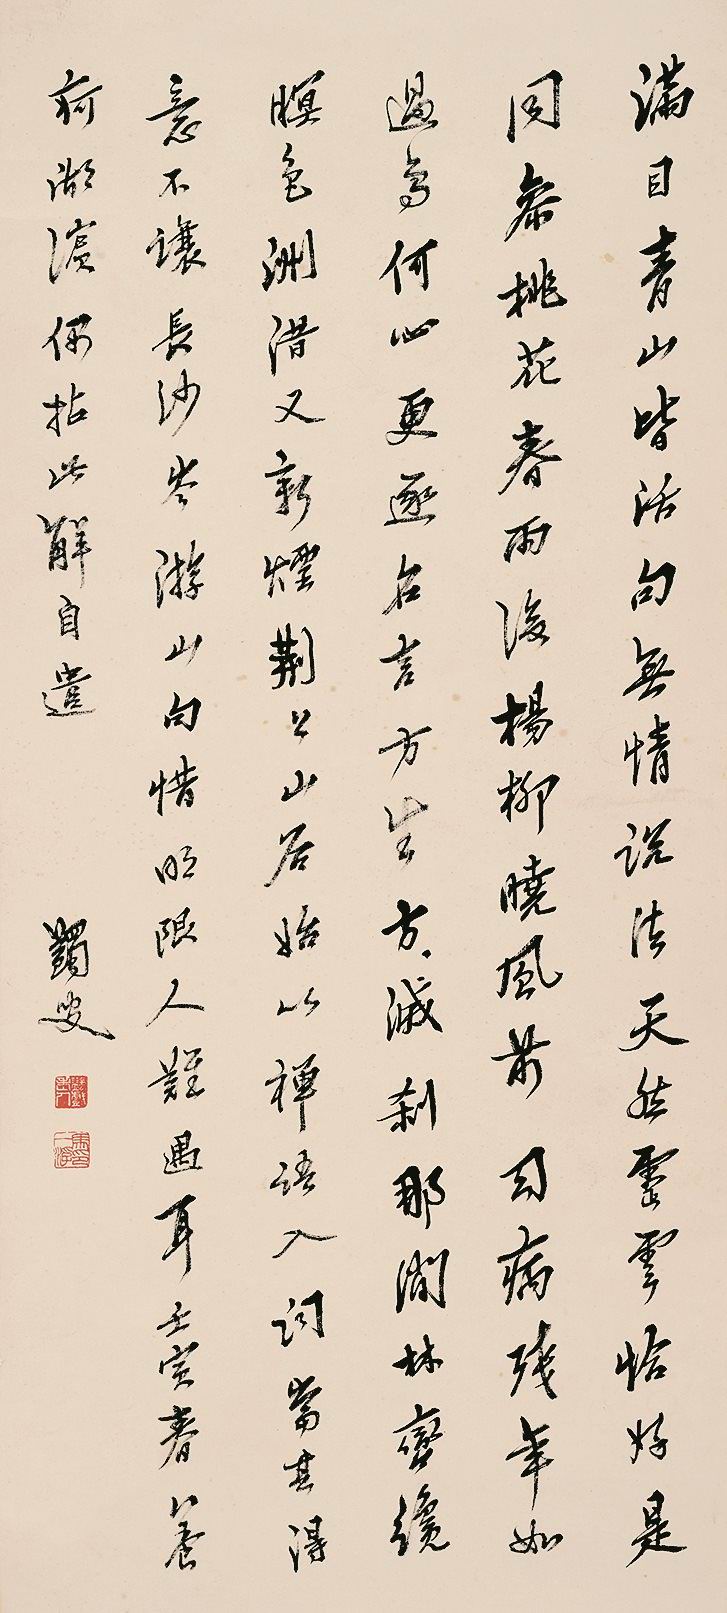 滿目青山皆活句無情說法天然靈雲恰好是
同參桃花春雨後楊柳曉風前 病殘年如
過鳥何心更逐名言方生方滅剎那間林巒纔
暝色洲渚又新煙荊公山居始以禪語入詞當其得
意不讓長沙岑游山句惜明眼人難遇耳壬寅春養
疴湖濱偶拈此解自遣 蠲叟
蠲戲老人